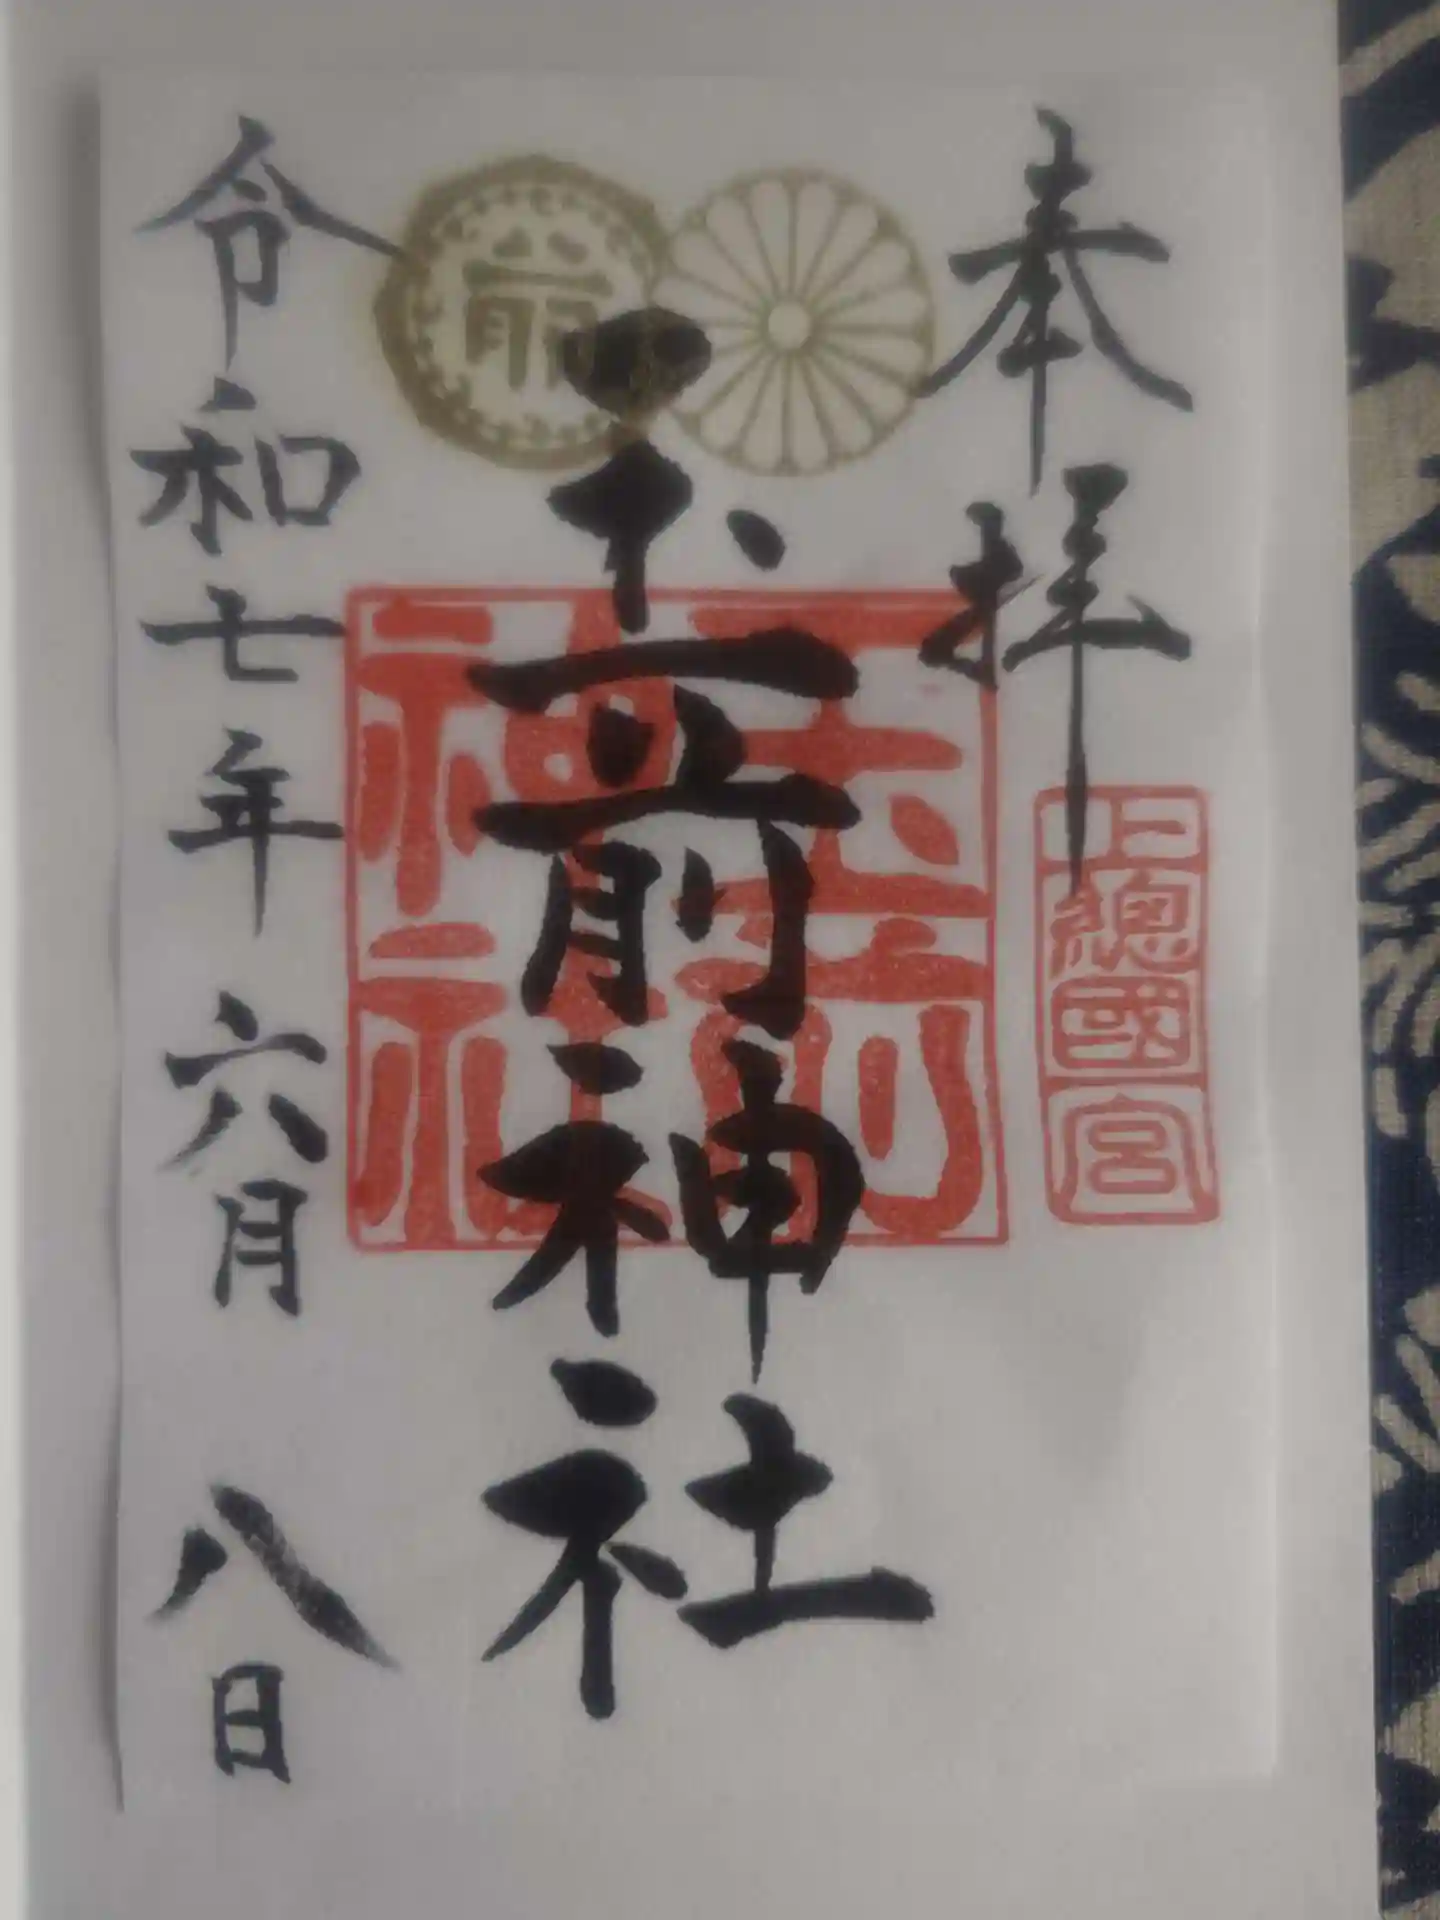 奉拝
上總國一宮
玉前神社
玉前神社
前
令和七年 六月 八日